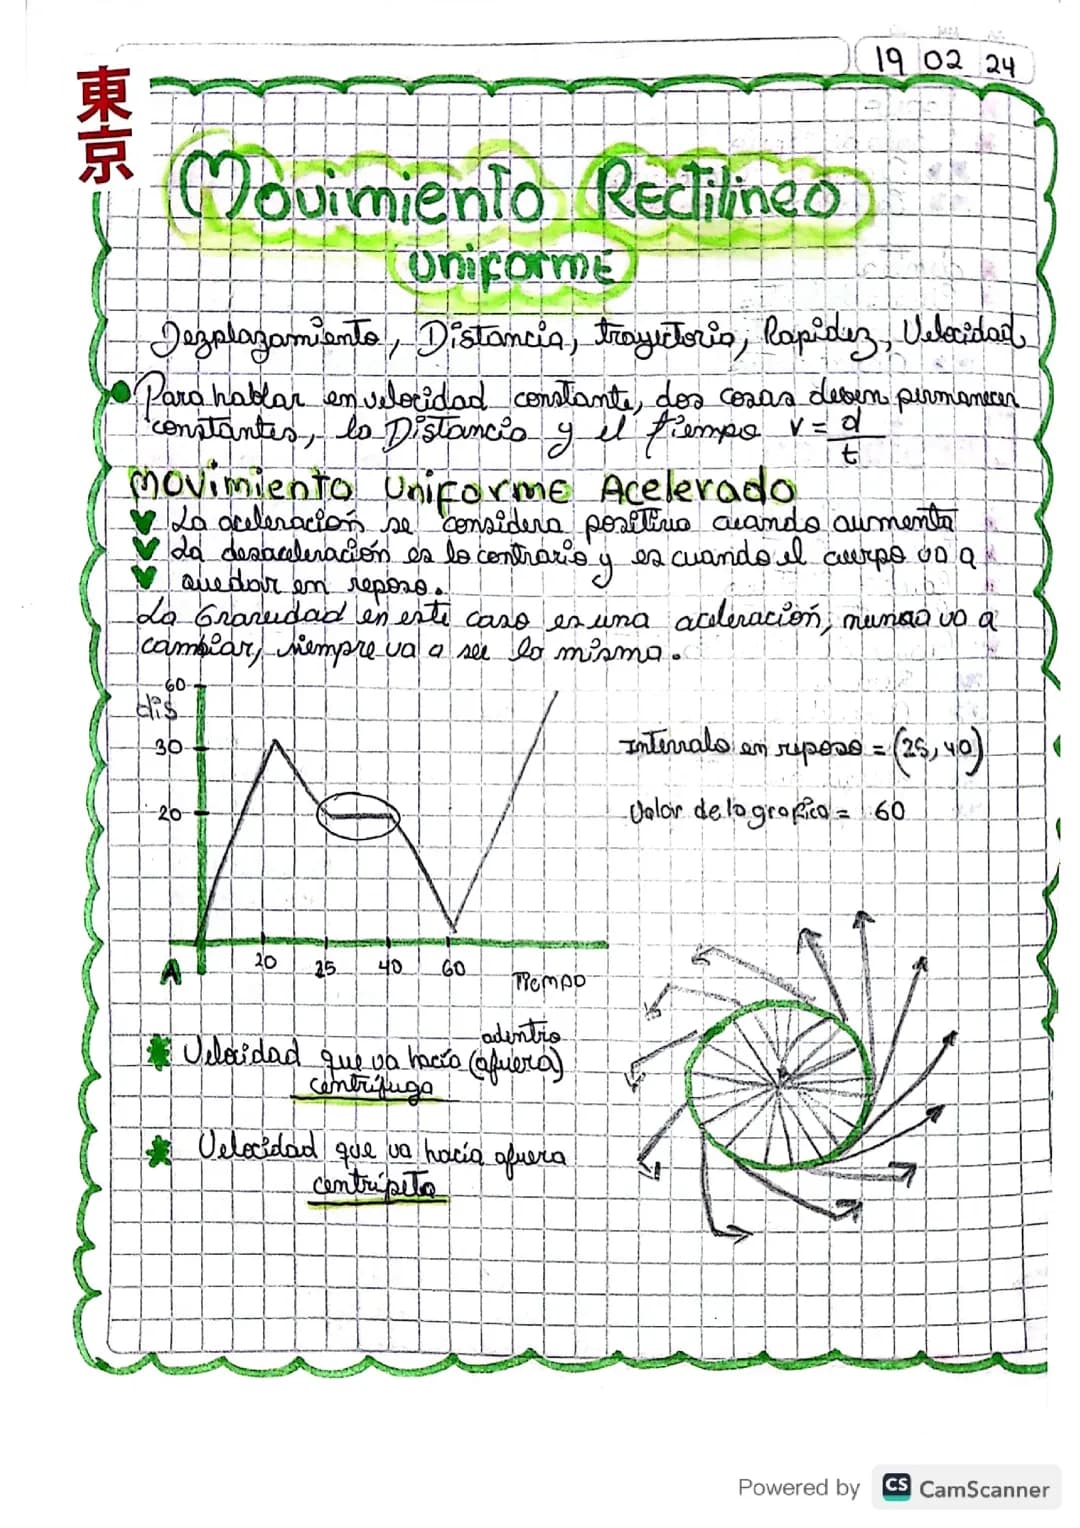 19 02 24
東京
Movimiento Rectilineo
Uniforme
Dezplazamiento, Distancia, trayectoria, Rapidez, Velocidad
Para hablar en velocidad constante, dos cosas deben permanecer
constantes, la Distancia y el tiempo v = d/t
Movimiento Uniforme Acelerado
La aceleración se considera positiva cuando aumenta
La desaceleración es lo contrario y es cuando el cuerpo va a
quedar en reposo.
La Gravedad en este caso es una aceleración, nunca va a
cambiar, siempre va a ser la misma.
60
dis
30
20
Intervalo en reposo = (25, 40)
Valor de la grafica = 60
A
20 25 40 60 Tiempo
adentro
Velocidad que va hacia (afuera)
centrífuga
Velocidad que va hacia afuera
centrípeta
Powered by CS CamScanner